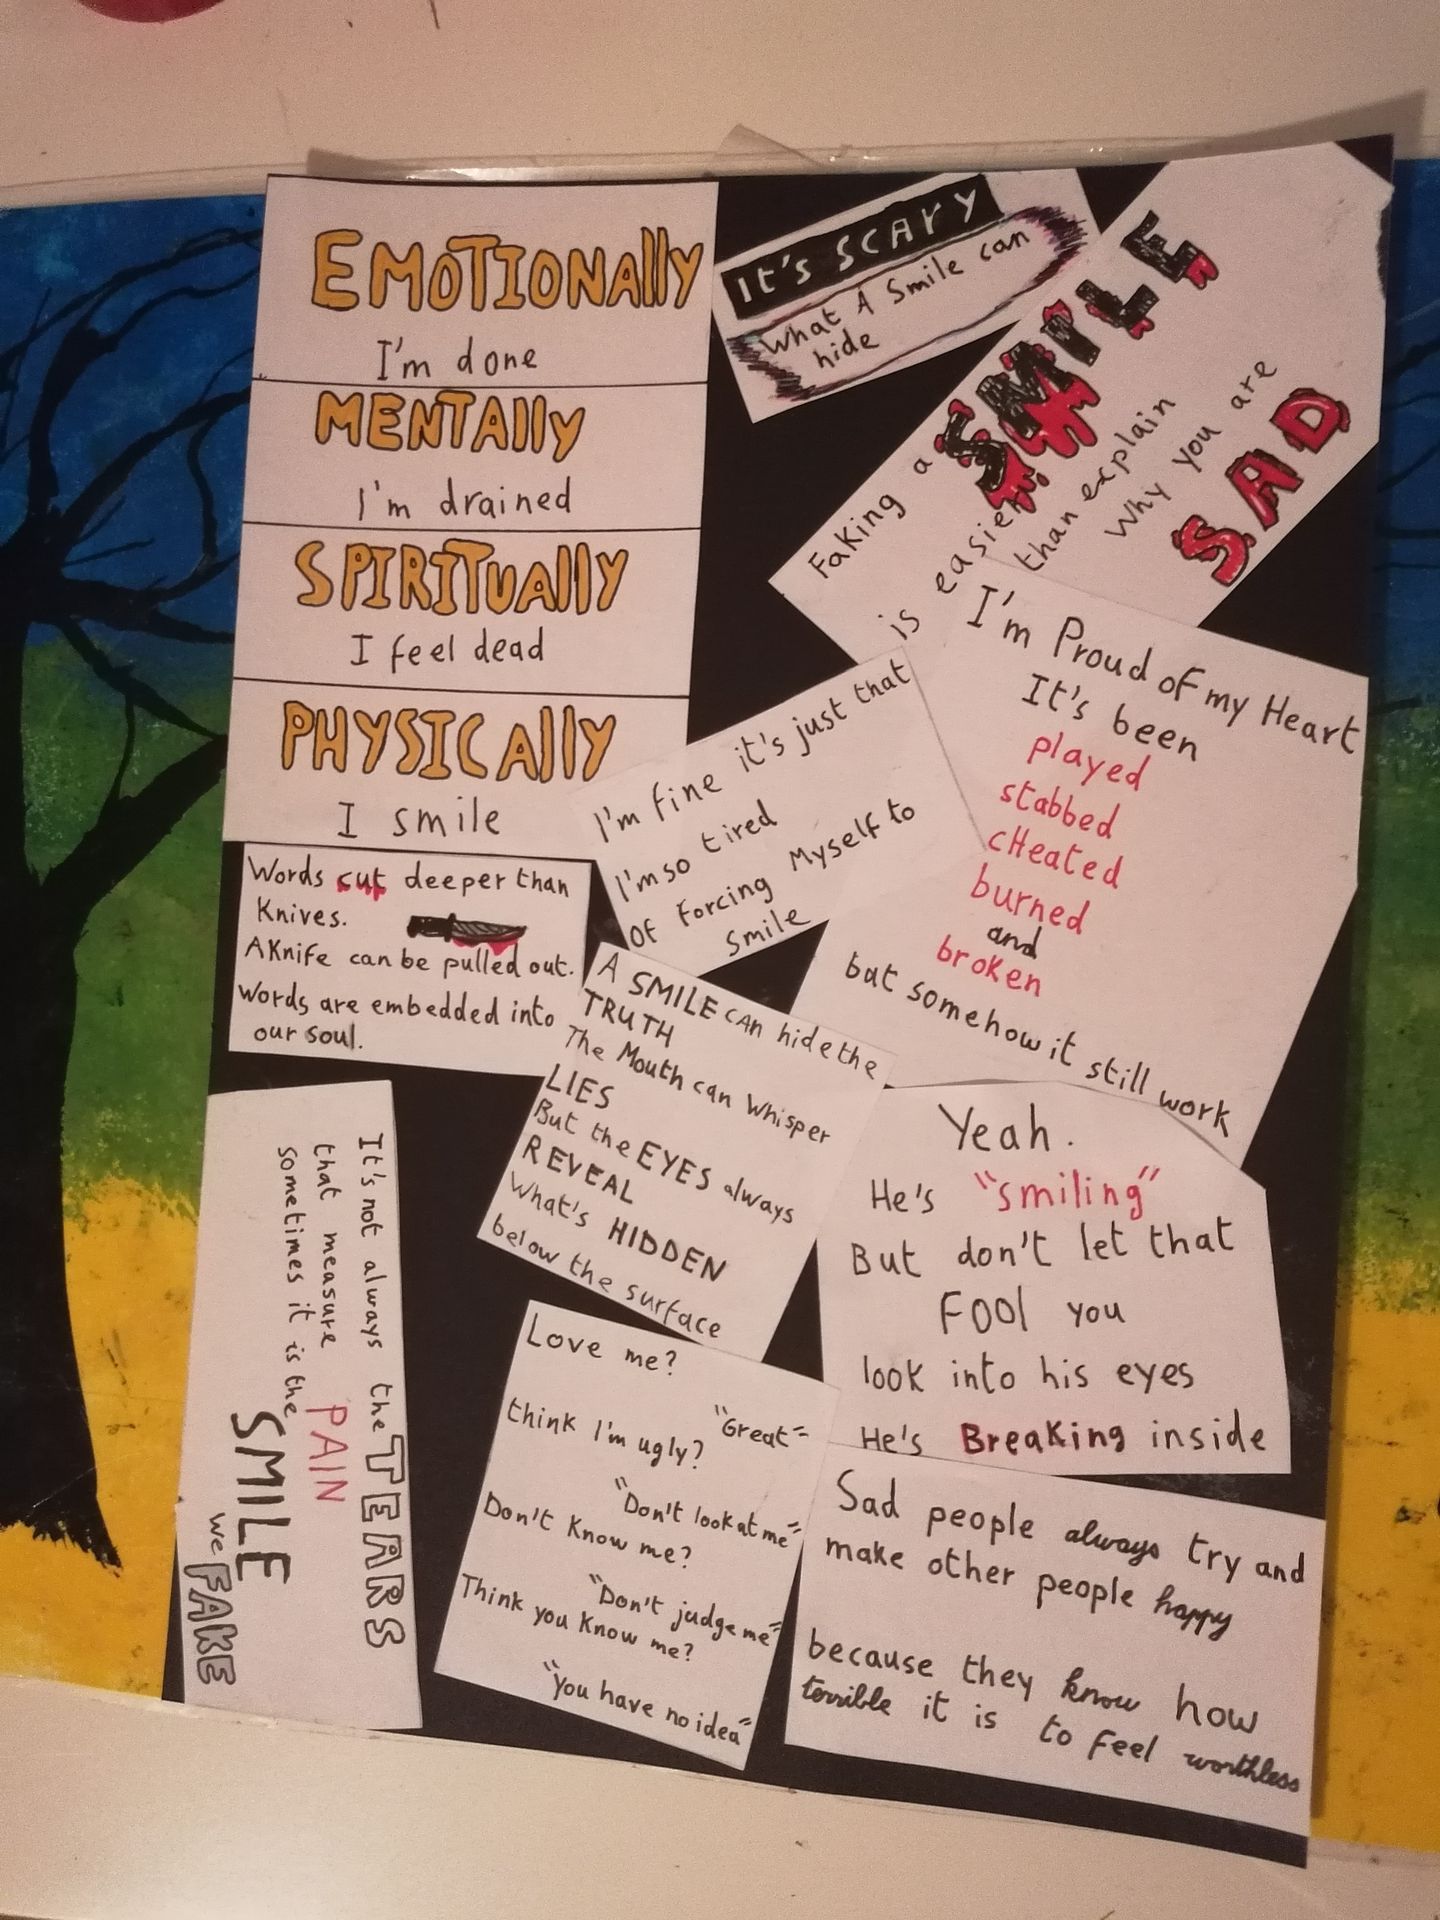 EMOTIONAlly
I'm done
MENTAlly
I'm drained
SPIRITUAlly
I feel dead
PHYSICAlly
I smile
IT'S SCARY
What A Smile can
hide
Faking a SMILE
is easier
than explain
Why you are
SAD
I'm Proud of my Heart
It's been
played
stabbed
cHeated
burned
and
broken
but somehow it still work
I'm fine it's just that
I'm so tired
Of Forcing Myself to
Smile
Words cut deeper than
Knives.
A Knife can be pulled out.
Words are embedded into
our soul.
A SMILE cAn hide the
TRUTH
The Mouth can Whisper
LIES
But the EYES always
REVEAL
What's HIDDEN
below the surface
Yeah.
He's "smiling"
But don't let that
FOOl you
look into his eyes
He's BreaKing inside
It's not always the TEARS
that measure PAIN
sometimes it is the SMILE
we FAKE
Love me?
"Great"
think I'm ugly?
"Don't look at me"
Don't Know me?
"Don't judge me"
Think you Know me?
"you have no idea"
Sad people always try and
make other people happy
because they know how
terrible it is to feel worthless